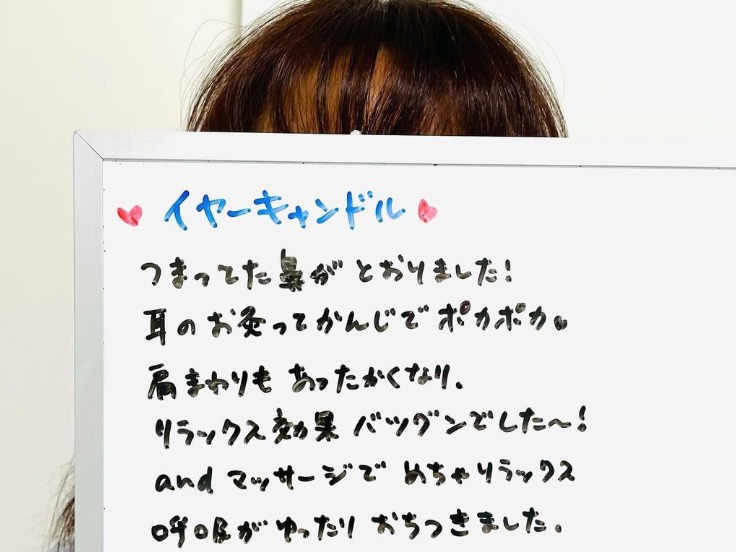 ♥ イヤーキャンドル ♥
つまってた鼻がとおりました!
耳のお灸ってかんじでポカポカ♥
肩まわりも あったかくなり、
リラックス効果 バツグンでした〜!
and マッサージで めちゃリラックス
呼吸が ゆったり おちつきました。